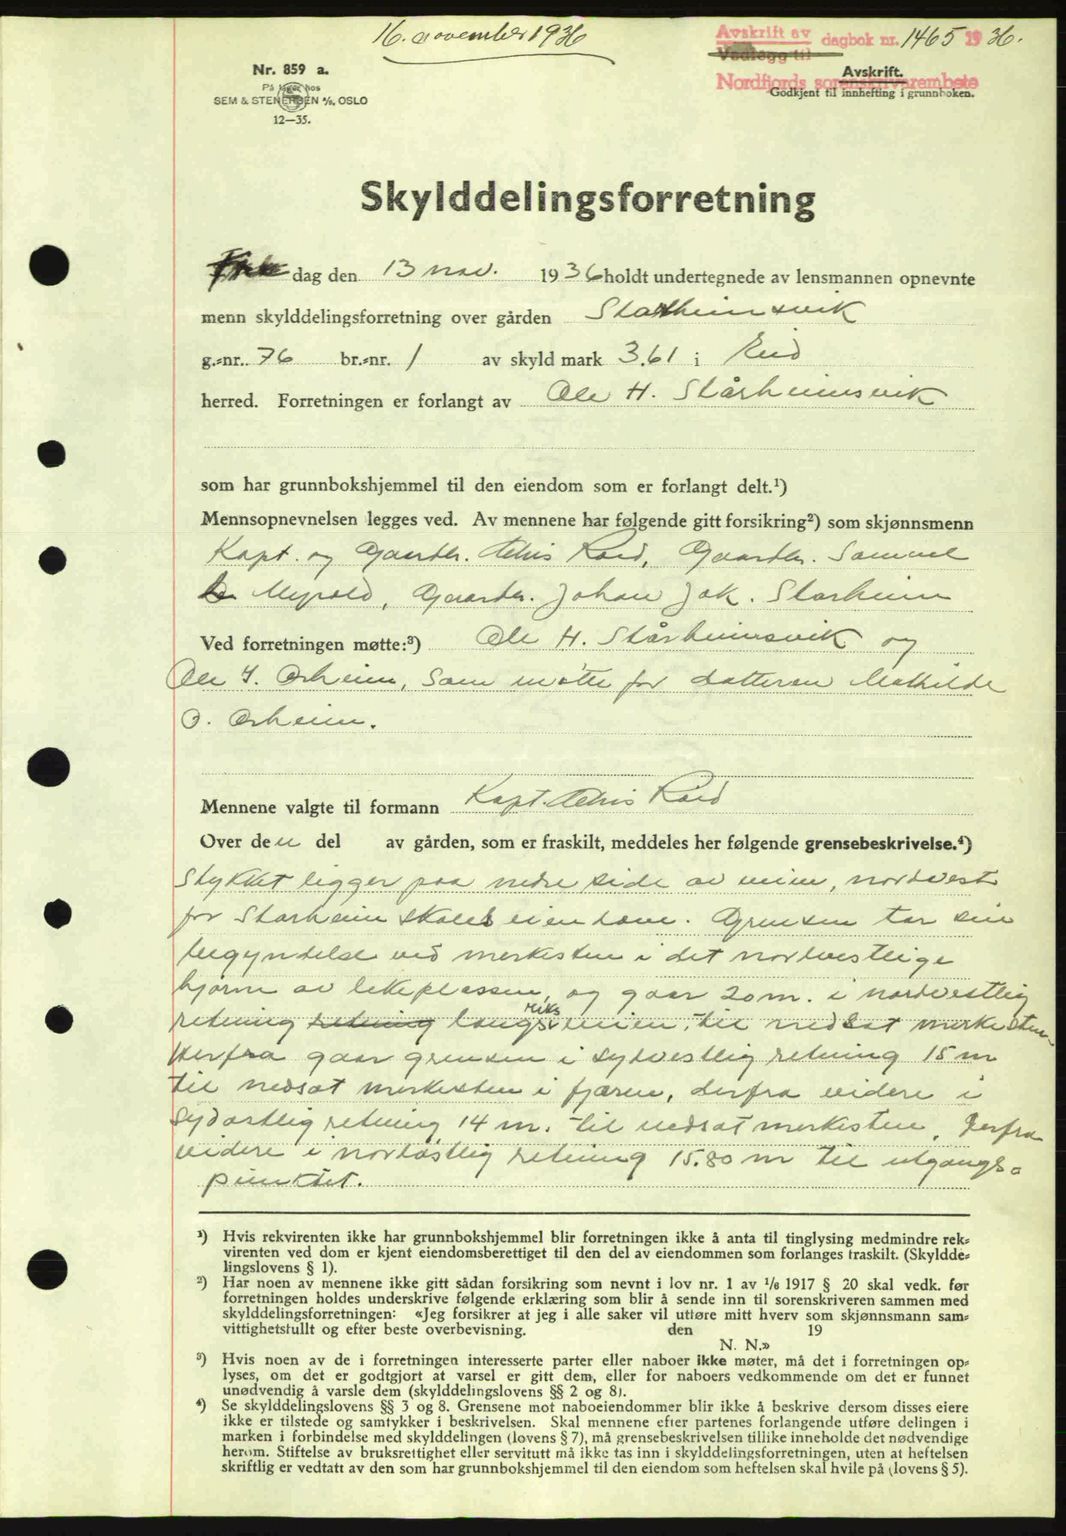 16. november 1936
Avskrift av dagbok nr. 1465 1936.
Vedlegg til
Nordfjords sorenskriverembete
Nr. 859 a.
På lager hos
SEM & STENERSEN A/S, OSLO
12—35.
Avskrift.
Godkjent til innhefting i grunnboken.
Skylddelingsforretning
dag den 13 nov. 1936 holdt undertegnede av lensmannen opnevnte
menn skylddelingsforretning over gården Starheimsvik
g.-nr. 76 br.-nr. 1 av skyld mark 3.61 i Eid
herred. Forretningen er forlangt av Ole H. Stårheimsvik
som har grunnbokshjemmel til den eiendom som er forlangt delt.¹)
Mennsopnevnelsen legges ved. Av mennene har følgende gitt forsikring²) som skjønnsmenn
Kapt. og Gaardbr. Roed, Gaardbr. Samuel
Myrold, Gaardbr. Johan Jak. Starheim
Ved forretningen møtte:³) Ole H. Stårheimsvik og
Ole I. Orheim, som møtte for datteren Mathilde
O. Orheim.
Mennene valgte til formann Kapt. Roed
Over den del av gården, som er fraskilt, meddeles her følgende grensebeskrivelse.⁴)
Stykket ligger paa nedre side av veien, nordvest
for Starheim skoles eiendom. Grensen tar sin
begyndelse ved merkesten i det nordvestlige
hjørne av lekeplassen, og gaar 20 m. i nordvestlig
retning retning langs riksveien, til nedsat merkesten.
Herfra gaar grensen i sydvestlig retning 15 m
til nedsat merkesten i fjæren, derfra videre i
sydostlig retning 14 m. til nedsat merkesten, derfra
videre i nordostlig retning 15.80 m til utgangs-
punktet.
¹) Hvis rekvirenten ikke har grunnbokshjemmel blir forretningen ikke å anta til tinglysing medmindre rek-
virenten ved dom er kjent eiendomsberettiget til den del av eiendommen som forlanges fraskilt. (Skyldde-
lingslovens § 1).
²) Har noen av mennene ikke gitt sådan forsikring som nevnt i lov nr. 1 av 1/6 1917 § 20 skal vedk. før
forretningen holdes underskrive følgende erklæring som blir å sende inn til sorenskriveren sammen med
skylddelingsforretningen: «Jeg forsikrer at jeg i alle saker vil utføre mitt hverv som skjønnsmann sam-
vittighetsfullt og efter beste overbevisning. den 19
N. N.»
³) Hvis noen av de i forretningen interesserte parter eller naboer ikke møter, må det i forretningen op-
lyses, om det er godtgjort at varsel er gitt dem, eller for naboers vedkommende om det er funnet
unødvendig å varsle dem (skylddelingslovens §§ 2 og 8).
⁴) Se skylddelingslovens §§ 3 og 8. Grensene mot naboeiendommer blir ikke å beskrive dersom disses eiere
ikke er tilstede og samtykker i beskrivelsen. Skal mennene efter partenes forlangende utføre delingen i
marken i forbindelse med skylddelingen (lovens § 7), må grensebeskrivelsen tillike inneholde det nødvendige
herom. Stiftelse av bruksrettighet eller servitutt må ikke tas inn i skylddelingsforretningen, uten at heftelsen
skriftlig er vedtatt av den som har grunnbokshjemmel til den eiendom som heftelsen skal hvile på (lovens § 5).